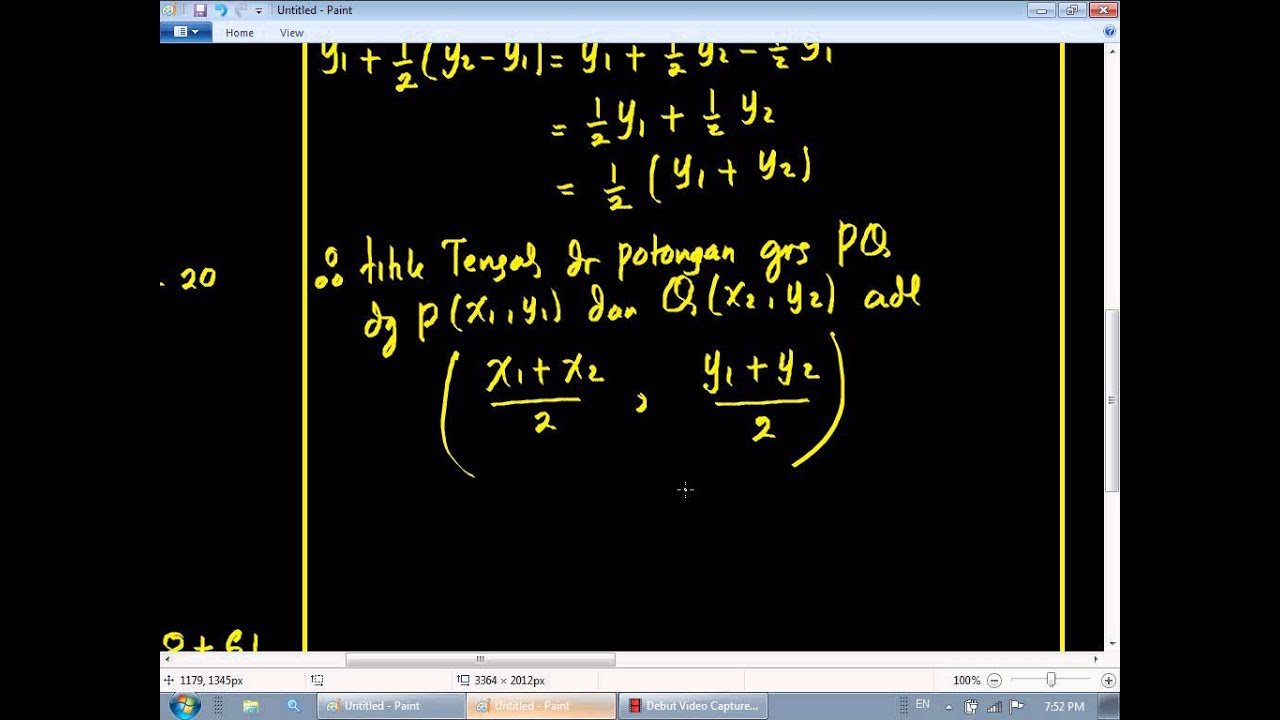 Untitled - Paint
Home View
y₁ + 1/2 (y₂ - y₁) = y₁ + 1/2 y₂ - 1/2 y₁
= 1/2 y₁ + 1/2 y₂
= 1/2 (y₁ + y₂)
∴ titik Tengah dr potongan grs PQ
. 20
dg P(x₁, y₁) dan Q(x₂, y₂) adl
( (x₁ + x₂)/2 , (y₁ + y₂)/2 )
8 + 61
1179, 1345px 3364 × 2012px 100%
Untitled - Paint Untitled - Paint Debut Video Capture... EN 7:52 PM